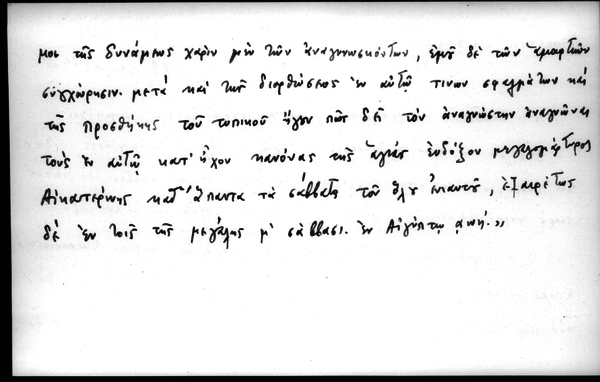 μοι τῆς δυνάμεως χάριν μὲν τῶν ἀναγινωσκόντων, ἐμοῦ δὲ τῶν ἁμαρτιῶν
συγχώρησιν. μετὰ καὶ τῆς διορθώσεως ἐν αὐτῷ τινων σφαλμάτων καὶ
τῆς προσθήκης τοῦ τυπικοῦ ἤγουν πῶς δεῖ τὸν ἀναγνώστην ἀναγνῶναι
τοὺς ἐν αὐτῷ κατ' ἦχον κανόνας τῆς ἁγίας ἐνδόξου μεγαλομάρτυρος
Αἰκατερίνης καθ' ἅπαντα τὰ σάββατα τοῦ ὅλου ἐνιαυτοῦ, ἐξαιρέτως
δὲ ἐν τοῖς τῆς μεγάλης μ' σάββασι. ἐν Αἰγύπτῳ αωη'.»